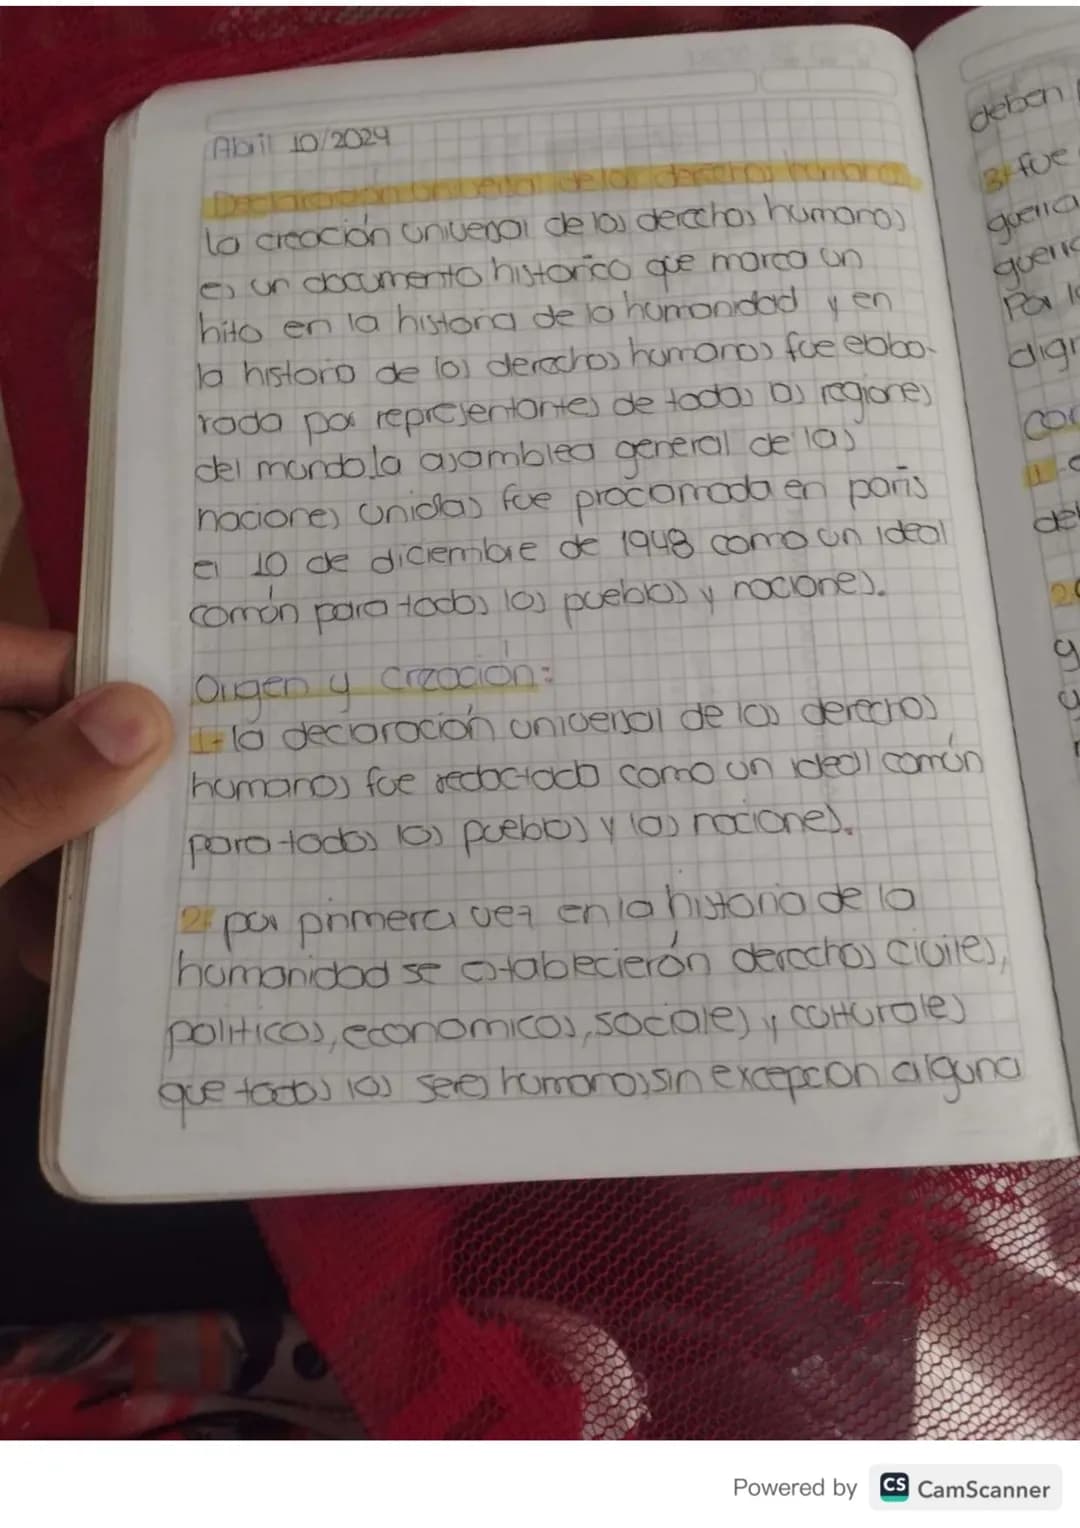 Abril 10/2024
Declaración universal de los derechos humanos
la creación universal de los derechos humanos
es un documento historico que marca un
hito en la historia de la humanidad y en
la historia de los derechos humanos fue elabo-
rada por representantes de todas las regiones
del mundo.la asamblea general de las
naciones unidas fue procamada en paris
el 10 de diciembre de 1948 como un ideal
común para todos los pueblos y naciones.
Origen y creación:
1- la declaración universal de los derechos
humanos fue redactado como un ideal común
para todos los pueblos y las naciones.
2- por primera vez en la historia de la
humanidad se establecierón derechos civiles,
politicos, economicos, sociales y culturales
que todos los seres humanos, sin excepcion alguna
deben
3- fue
guerra
Por
Powered by CS CamScanner